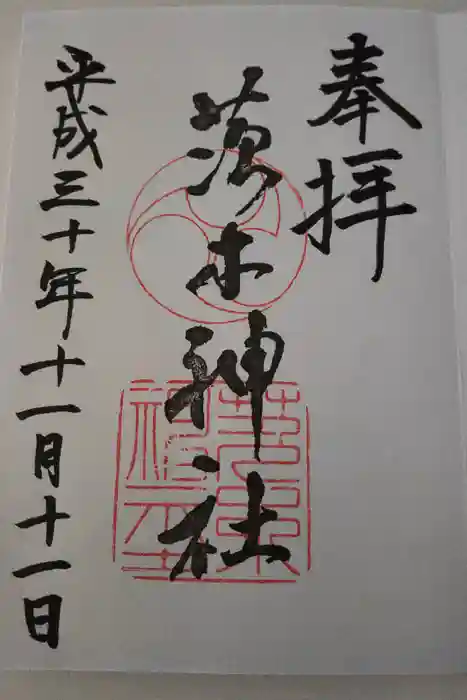 奉拝
茨木神社
平成三十年十一月十一日